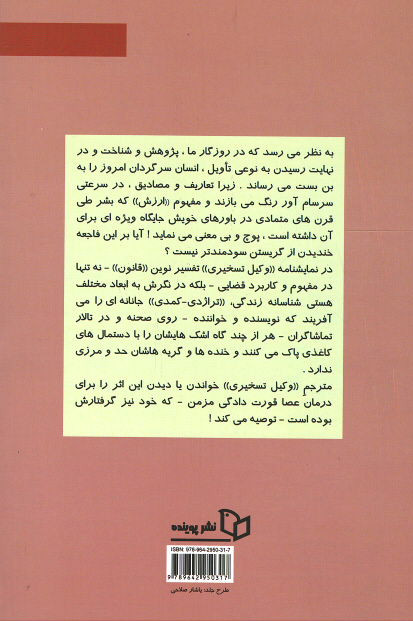 به نظر می رسد که در روزگار ما ، پژوهش و شناخت و در
نهایت رسیدن به نوعی تأویل ، انسان سرگردان امروز را به
بن بست می رساند . زیرا تعاریف و مصادیق ، در سرعتی
سرسام آور رنگ می بازند و مفهوم ((ارزش)) که بشر طی
قرن های متمادی در باورهای خویش جایگاه ویژه ای برای
آن داشته است ، پوچ و بی معنی می نماید ! آیا بر این فاجعه
خندیدن از گریستن سودمندتر نیست ؟
در نمایشنامه ((وکیل تسخیری)) تفسیر نوین ((قانون)) - نه تنها
در مفهوم و کاربرد قضایی - بلکه در نگرش به ابعاد مختلف
هستی شناسانه زندگی، ((تراژدی-کمدی)) جانانه ای را می
آفریند که نویسنده و خواننده - روی صحنه و در تالار
تماشاگران - هر از چند گاه اشک هایشان را با دستمال های
کاغذی پاک می کنند و خنده ها و گریه هاشان حد و مرزی
ندارد .
مترجم ((وکیل تسخیری)) خواندن یا دیدن این اثر را برای
درمان عصا قورت دادگی مزمن - که خود نیز گرفتارش
بوده است - توصیه می کند !
نشر پوینده
ISBN: 978-964-2950-31-7
9 789642 950317
طرح جلد: یاشار صلاحی